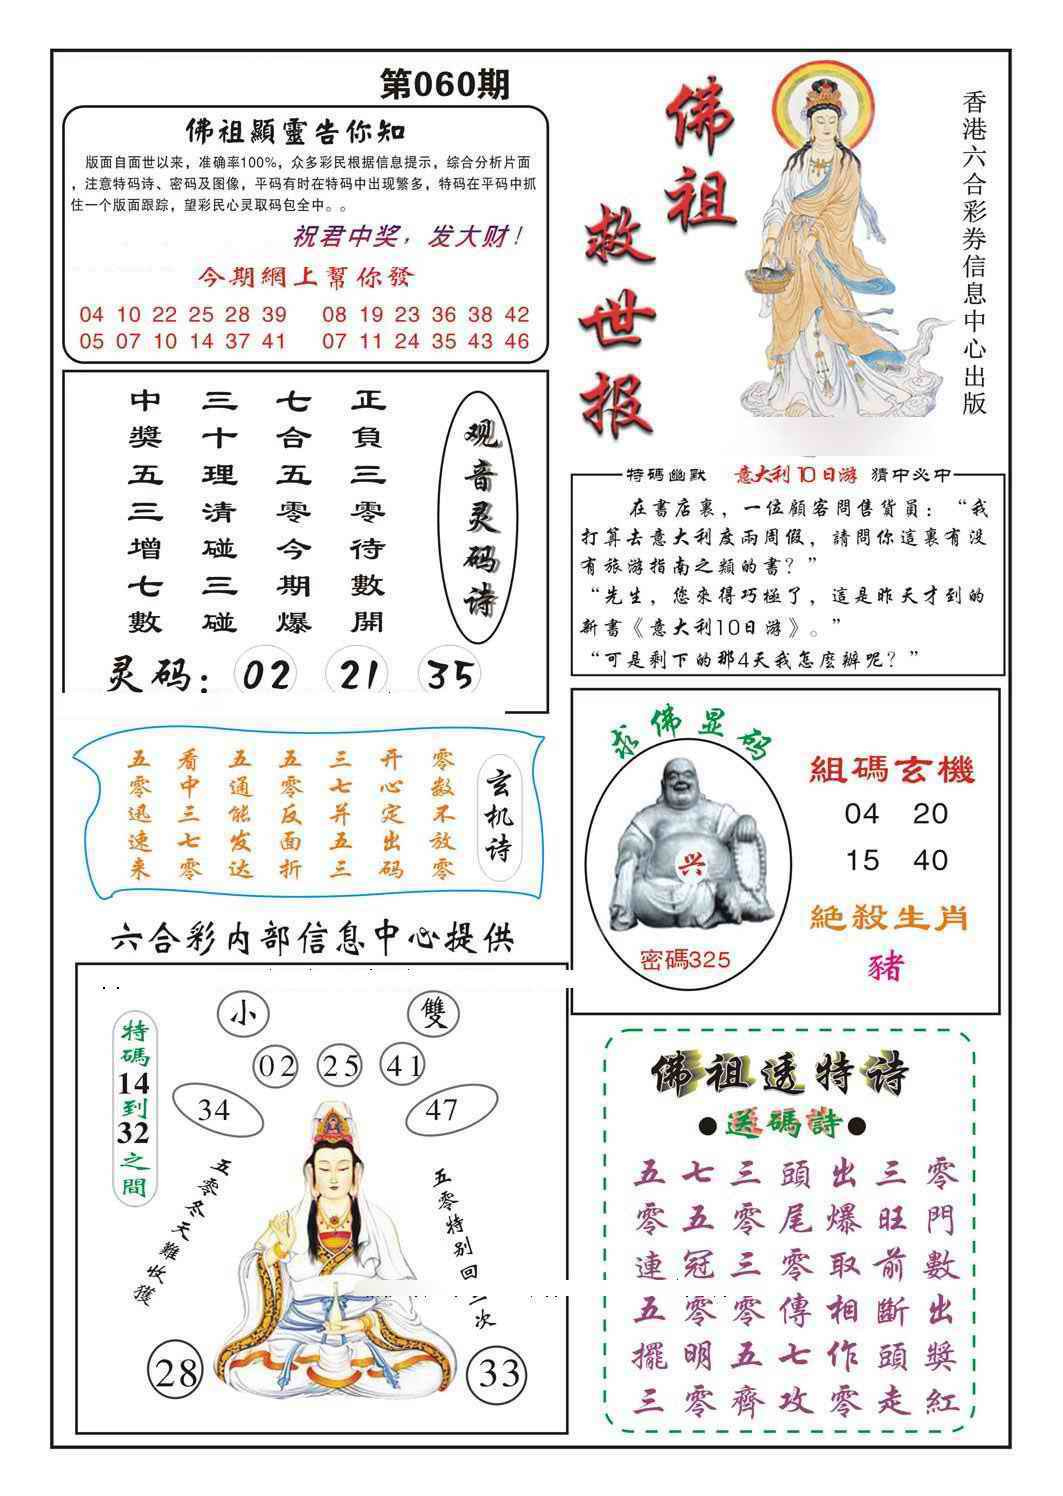 第060期
佛祖顯靈告你知
版面自面世以来，准确率100%，众多彩民根据信息提示，综合分析片面
，注意特码诗、密码及图像，平码有时在特码中出现繁多，特码在平码中抓
住一个版面跟踪，望彩民心灵取码包全中。。
祝君中奖，发大财！
今期網上幫你發
04 10 22 25 28 39 08 19 23 36 38 42
05 07 10 14 37 41 07 11 24 35 43 46
佛祖
救世报
香港六合彩券信息中心出版
观音灵码诗
正負三零待數開
七合五零今期爆
三十理清碰三碰
中獎五三增七數
灵码：02 21 35
特碼幽默 意大利10日游 猜中必中
在書店裏，一位顧客問售貨員：“我
打算去意大利度兩周假，請問你這裏有没
有旅游指南之類的書？”
“先生，您來得巧極了，這是昨天才到的
新書《意大利10日游》。”
“可是剩下的那4天我怎麽辦呢？”
玄机诗
零数不放零
开心定出码
三七并五三
五零反面折
五通能发达
看中三七零
五零迅速来
求佛显码
兴
密碼325
組碼玄機
04 20
15 40
絶殺生肖
豬
六合彩内部信息中心提供
特碼14到32之間
小 雙
02 25 41
34 47
五零冬天難收獲
五零特别回 次
28 33
佛祖透特诗
●送碼詩●
零門數出獎紅
三旺前斷頭走
出爆取相作零
頭尾零傳七攻
三零三零五齊
七五冠零明零
五零連五擺三